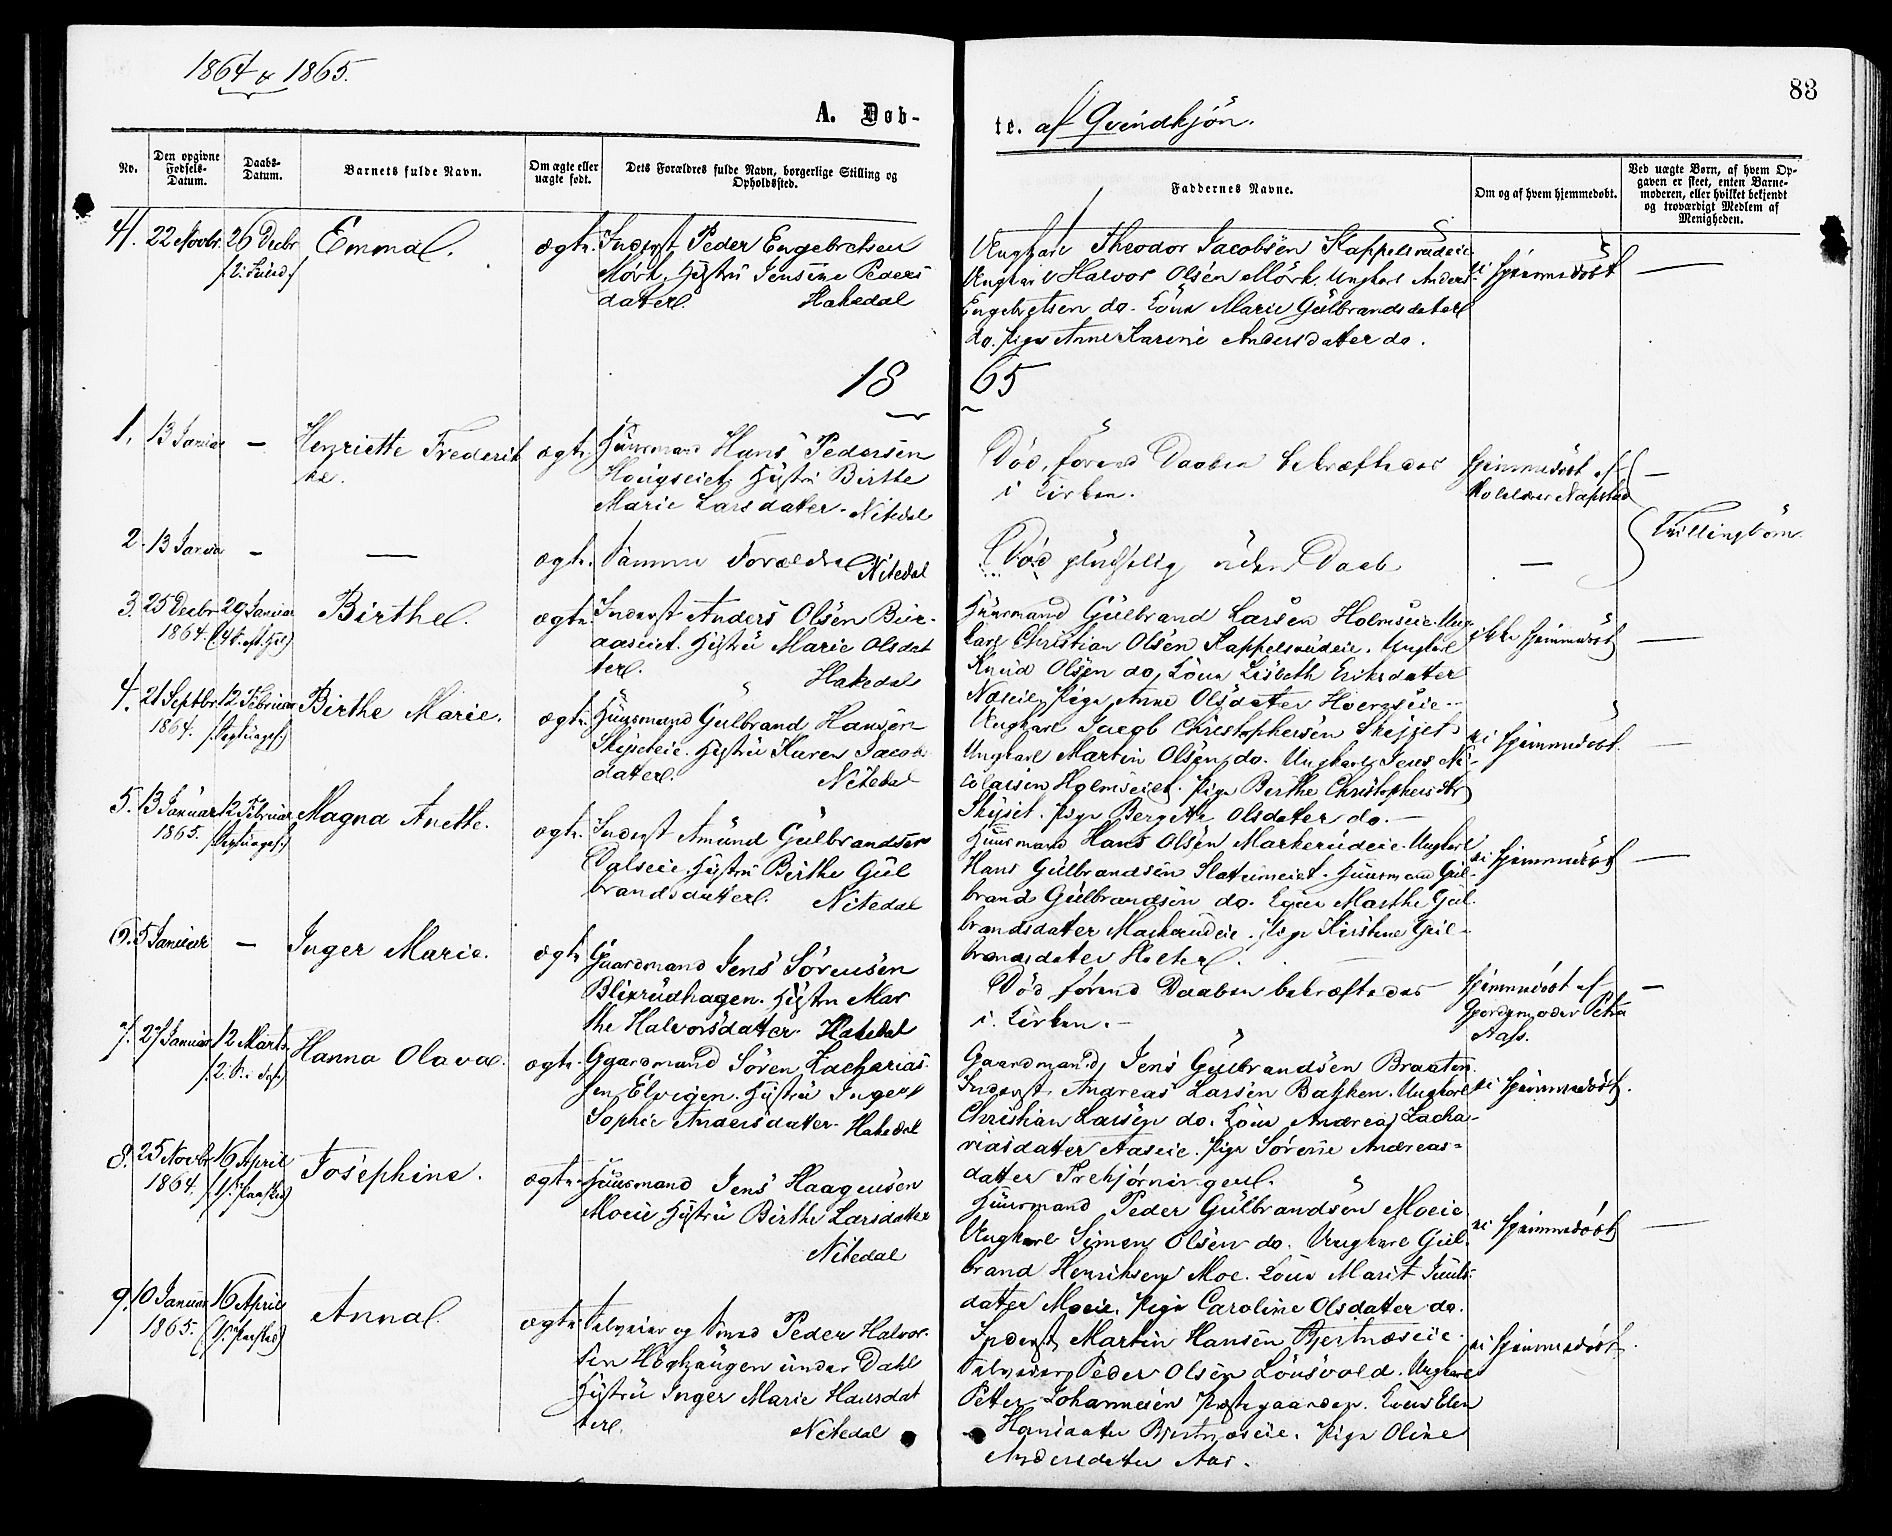 1864 & 1865.
83
A. Døb-
te. af Qvindkjön.
No.
Den opgivne Fødsels-Datum.
Daabs-Datum.
Barnets fulde Navn.
Om ægte eller uægte født.
Dets Forældres fulde Navn, borgerlige Stilling og Opholdssted.
Faddernes Navne.
Om og af hvem hjemmedøbt.
Ved uægte Børn, af hvem Op-
gaven er skeet, enten Barne-
moderen, eller hvilket bekjendt
og troværdigt Medlem af
Menigheden.
22 Novbr. 26 Decbr Emma. ægte. Inderst Peder Engebretsen
Mörk. Hustru Jensine Peders
datter. Hakedal
Ungkarl Theodor Jacobsen Kappelsrudeie
Ungkarl Halvor Olsen Mörk. Ungkarl Anders
Engebretsen do. Kone Marie Gulbrandsdatter
do. Pige Anne Karine Andersdatter do.
ei hjemmedöbt —
18 65
1. 13 Januar — Henriette Frederik
ke.
ægte. Huusmand Hans Pedersen
Hougseiet. Hustru Birthe
Marie Larsdatter. Nitedal
Död, förend Daaben bekræftedes
i Kirken.
Hjemmedöbt af
Kolelærer Nafstad —
Tvillingbörn.
2. 13 Januar — — ægte. Samme Forældre Nitedal
Död pludselig uden Daab —
3. 25 Decbr 1864. 29 Januar Birthe. ægte. Inderst Anders Olsen Beie-
aaseiet. Hustru Marie Olsdat
ter. Hakedal
Huusmand Gulbrand Larsen Holmseie. Ung-
karl Christian Olsen Kappelsrudeie. Ungkarl
Knud Olsen do. Kone Lisbeth Eriksdatter
Næseie, Pige Anne Olsdatter
ikke hjemmedöbt —
4. 21 Septbr 1864. 12 Februar Birthe Marie. ægte. Huusmand Gulbrand Hansen
Hustru Karen Jacobs
datter. Nitedal
Ungkarl Jacob Christophersen
Ungkarl Martin Olsen do. Ungkarl Jens Ni-
colaisen Holmseiet. Pige Birthe Christophersdtr
Pige Bergithe Olsdatter do. —
ei hjemmedöbt. —
5. 13 Januar 1865. 12 Februar Magna Anette. ægte. Inderst Amund Gulbrandsen
Dalseie. Hustru Birthe Gul
brandsdatter. Nitedal
Huusmand Hans Olsen Markerudeie. Ungkarl
Hans Gulbrandsen Slatumeiet. Huusmand Gul-
brand Gulbrandsen do. Marthe Gul
brandsdatter Markerudeie. Pige Kirstine Gul-
brandsdatter Holter.
ei hjemmedöbt —
6. 5 Januar — Inger Marie. ægte Gaardmand Jens Sörensen
Blixrudhagen. Hustru Mar
the Halvorsdatter. Hakedal
Död, förend Daaben bekræftedes
i Kirken. —
Hjemmedöbt af
Gjordemoder Petra
Aass. —
7. 27 Januar 12 Marts Hanna Olava. ægte. Gaardmand Sören Zacharias-
sen Elvigen. Hustru Inger
Sophie Andersdatter. Hakedal
Gaardmand Jens Gulbrandsen Braaten.
Inderst Andreas Larsen Bakken. Ungkarl
Christian Larsen do. Kone Andrea Zacha-
riasdatter Aaseie. Pige Sörine Andreas-
datter
ei hjemmedöbt.
8. 25 Novbr 1864. 16 April (1. Paaskedag) Josephine. ægte. Huusmand Jens Haagensen
Moeie. Hustru Birthe Larsdatter
Nitedal
Huusmand Peder Gulbrandsen Moeie
Ungkarl Simen Olsen do. Ungkarl Gul
brand Henriksen Moe. Kone Marit
datter Moeie. Pige Caroline Olsdatter do.
ei hjemmedöbt —
9. 10 Januar 1865. 16 April Anna. ægte. Selveier og Smed Peder Halvor-
sen Höghaugen under Dahl
Hustru Inger Marie Hansdat
ter. Nitedal
Inderst Martin Hansen Bjertnæseie.
Selveier Peder Olsen Lönsvold. Ungkarl
Petter Johannesen Præstegaarden. Kone Elen
Hansdatter Bjertnæseie. Pige Oline
Andersdatter Aas.
ei hjemmedöbt.